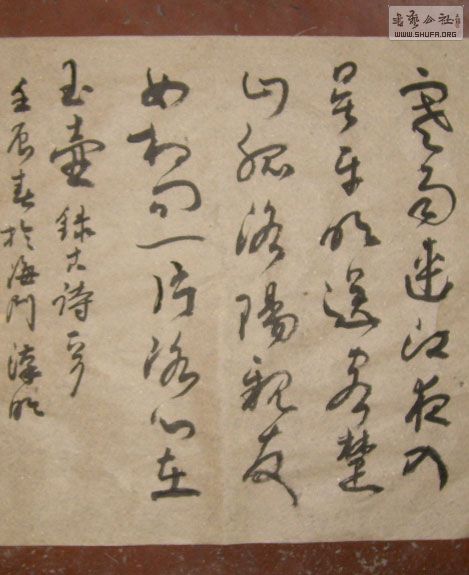 寒雨連江夜入
吴平明送客楚
山孤洛陽親友
如相问一片冰心在
玉壶 録古詩一首
壬辰春於海门
书艺公社
WWW.SHUFA.ORG